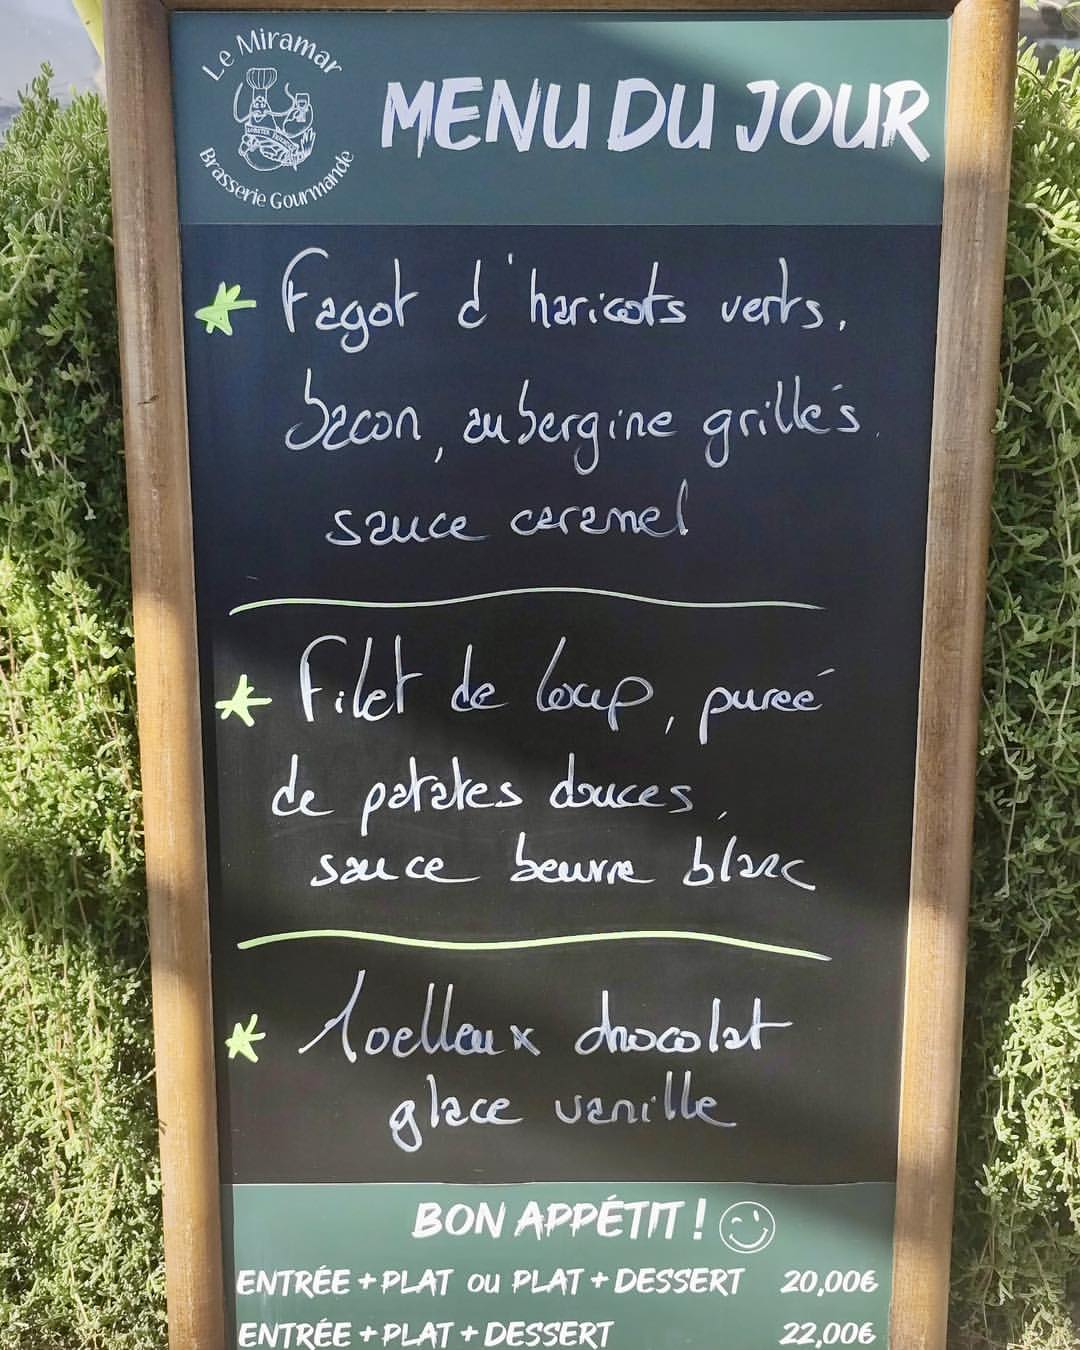 Le Miramar
Brasserie Gourmande
MENU DU JOUR
Fagot d'haricots verts,
bacon, aubergine grillés,
sauce caramel
Filet de loup, pureé
de patates douces,
sauce beurre blanc
Moelleux chocolat
glace vanille
BON APPÉTIT !
ENTRÉE + PLAT ou PLAT + DESSERT 20,00€
ENTRÉE + PLAT + DESSERT 22,00€